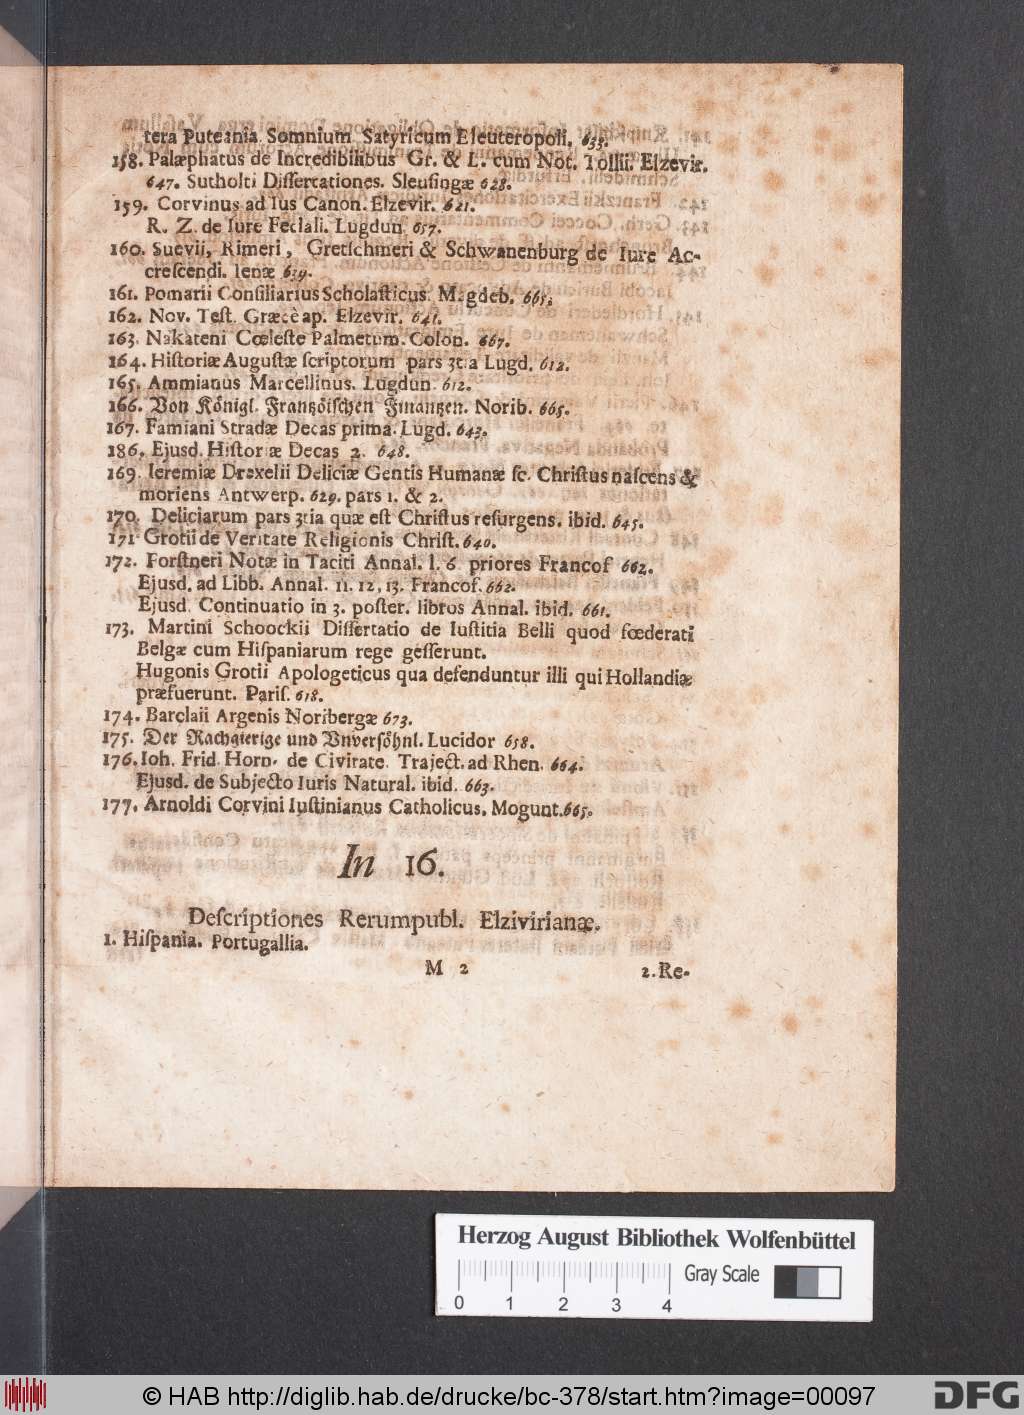 tera Puteania Somnium Satyricum Eleuteropoli. 633.
158. Palæphatus de Incredibilibus Gr. & L. cum Not. Tollii. Elzevir.
647. Sutholti Dissertationes. Sleusingæ 628.
159. Corvinus ad Ius Canon. Elzevir. 621.
R. Z. de Iure Feciali. Lugdun. 657.
160. Suevii, Rimeri, Gretschmeri & Schwanenburg de Iure Ac-
crescendi. Ienæ 639.
161. Pomarii Consiliarius Scholasticus. Magdeb. 665.
162. Nov. Test. Græcè ap. Elzevir. 641.
163. Nakateni Cœleste Palmetum. Colon. 667.
164. Historiæ Augustæ scriptorum pars 3tia Lugd. 612.
165. Ammianus Marcellinus. Lugdun. 612.
166. Von Königl. Frantzöischen Finantzen. Norib. 665.
167. Famiani Stradæ Decas prima. Lugd. 643.
186. Ejusd. Historiæ Decas 2. 648.
169. Ieremiæ Drexelii Deliciæ Gentis Humanæ sc. Christus nascens &
moriens Antwerp. 629. pars 1. & 2.
170. Deliciarum pars 3tia quæ est Christus resurgens. ibid. 645.
171 Grotii de Veritate Religionis Christ. 640.
172. Forstneri Notæ in Taciti Annal. l. 6 priores Francof 662.
Ejusd. ad Libb. Annal. 11. 12, 13. Francof. 662.
Ejusd. Continuatio in 3. poster. libros Annal. ibid. 661.
173. Martini Schoockii Dissertatio de Iustitia Belli quod fœderati
Belgæ cum Hispaniarum rege gesserunt.
Hugonis Grotii Apologeticus qua defenduntur illi qui Hollandiæ
præfuerunt. Paris. 618.
174. Barclaii Argenis Noribergæ 673.
175. Der Rachgierige und Unversöhnl. Lucidor 658.
176. Ioh. Frid. Horn. de Civitate. Traject. ad Rhen. 664.
Ejusd. de Subjecto Iuris Natural. ibid. 663.
177. Arnoldi Corvini Iustinianus Catholicus. Mogunt. 665.
In 16.
Descriptiones Rerumpubl. Elzivirianæ.
1. Hispania. Portugallia.
M 2 2. Re-
Herzog August Bibliothek Wolfenbüttel
Gray Scale
0 1 2 3 4
© HAB http://diglib.hab.de/drucke/bc-378/start.htm?image=00097
DFG